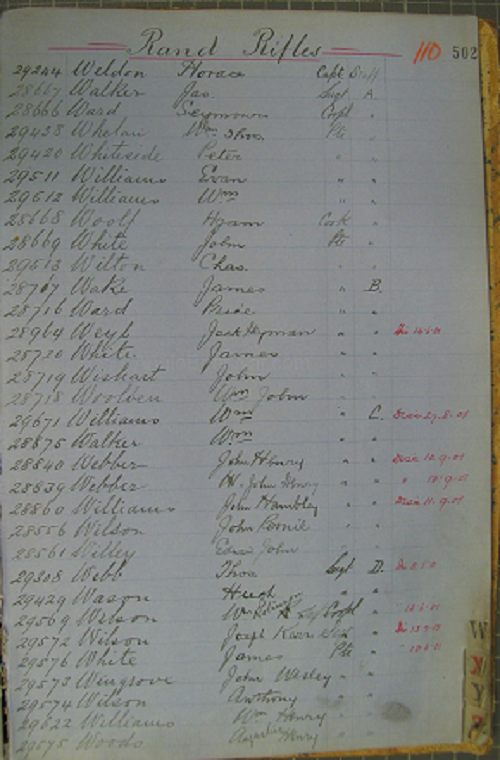 Rand Rifles 110 502
29244 Weldon Horace Capt Staff
28667 Walker Jas. Sergt A.
28666 Ward Seymour Corpl "
29438 Whelan Wm Thos. Pte "
29420 Whiteside Peter " "
29511 Williams Evan " "
29512 Williams Wm " "
28668 Woolf Cook "
28669 White John Pte "
29513 Wilton Chas. " "
28767 Wake James " B.
28716 Ward " "
28964 Weyl Jack Hyman " "
28720 White James " "
28719 Wishart John " "
28718 Woolven Wm John " "
29671 Williams Wm " C.
28875 Walker Wm " "
28840 Webber John Henry " "
28839 Webber W. John Henry " "
28860 Williams John Hambley " "
28556 Wilson John " "
28561 Willey Edwin John " "
29308 Webb Thos Sergt D.
29429 Wason Hugh " "
29569 Wilson Wm Corpl "
29572 Wilson Joseph "
29576 White James Pte "
29573 Wingrove John Wesley " "
29574 Wilson Anthony " "
29622 Williams Wm Henry " "
29575 Woods Augustus Henry " "
W